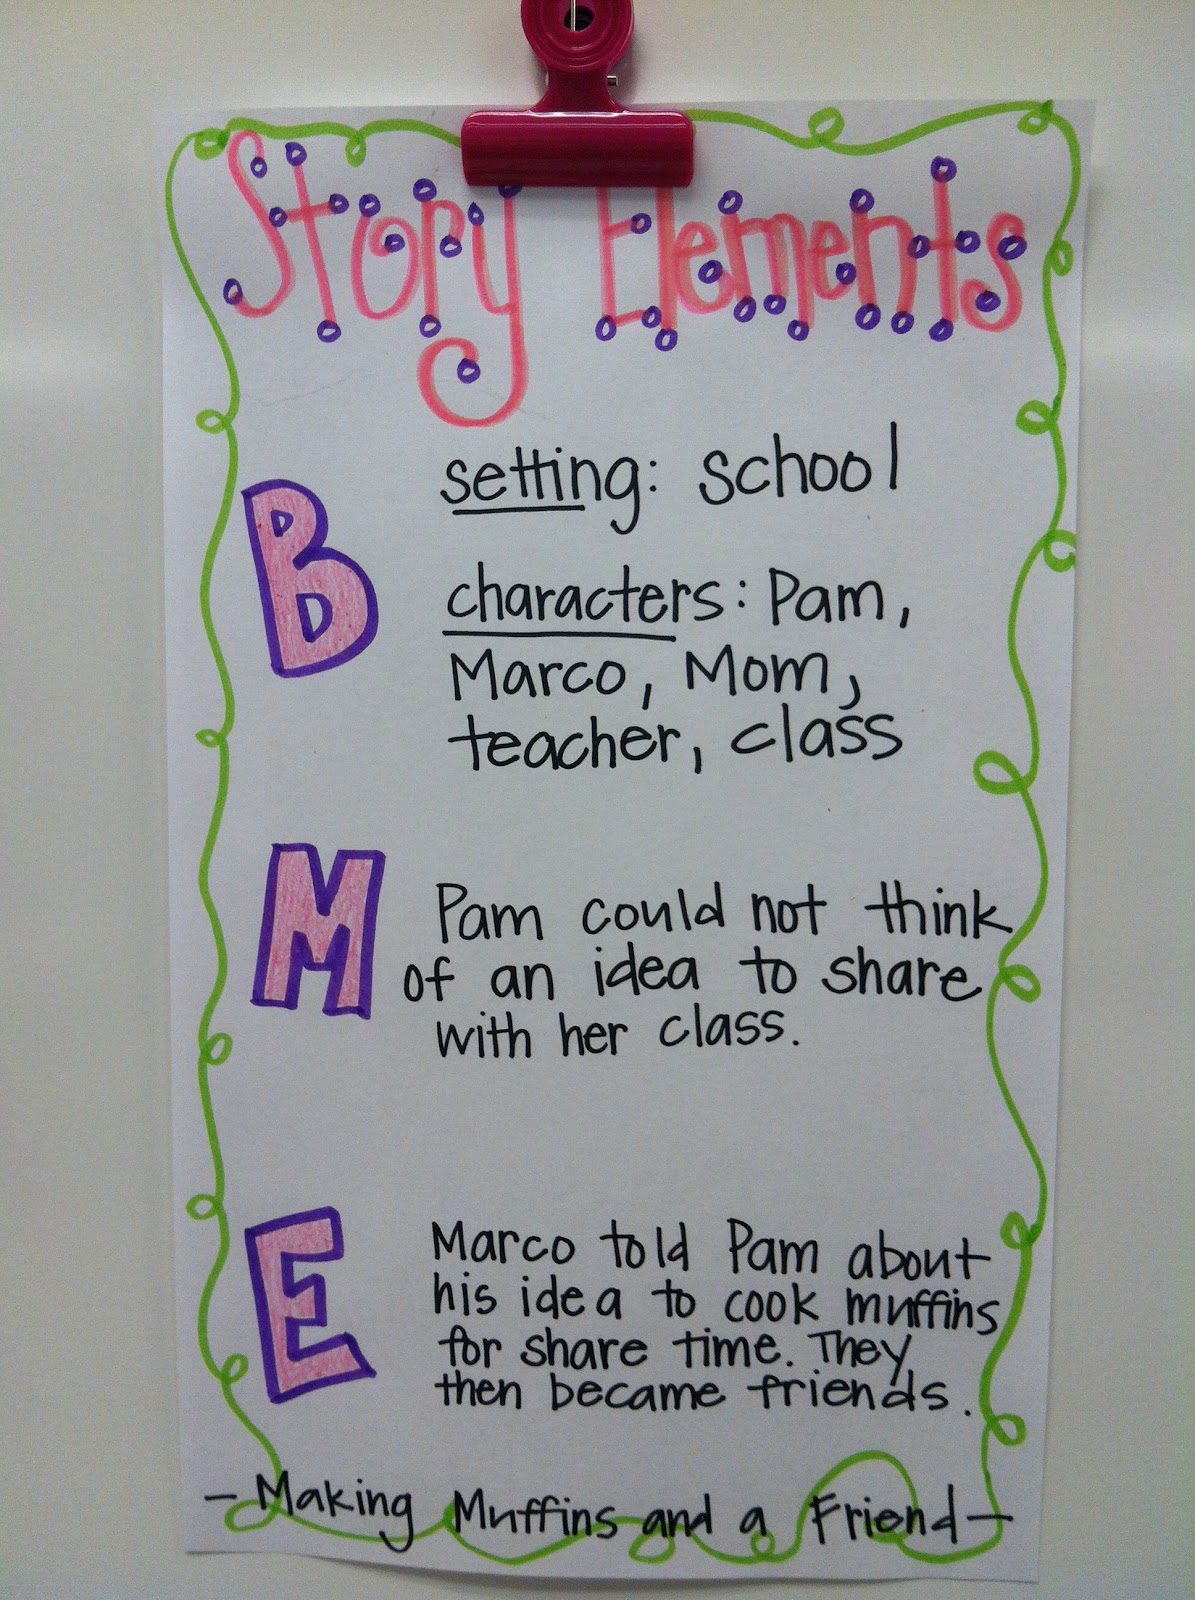 Story Elements
B
setting: school
characters: Pam,
Marco, Mom,
teacher, class
M
Pam could not think
of an idea to share
with her class.
E
Marco told Pam about
his idea to cook muffins
for share time. They
then became friends.
- Making Muffins and a Friend -